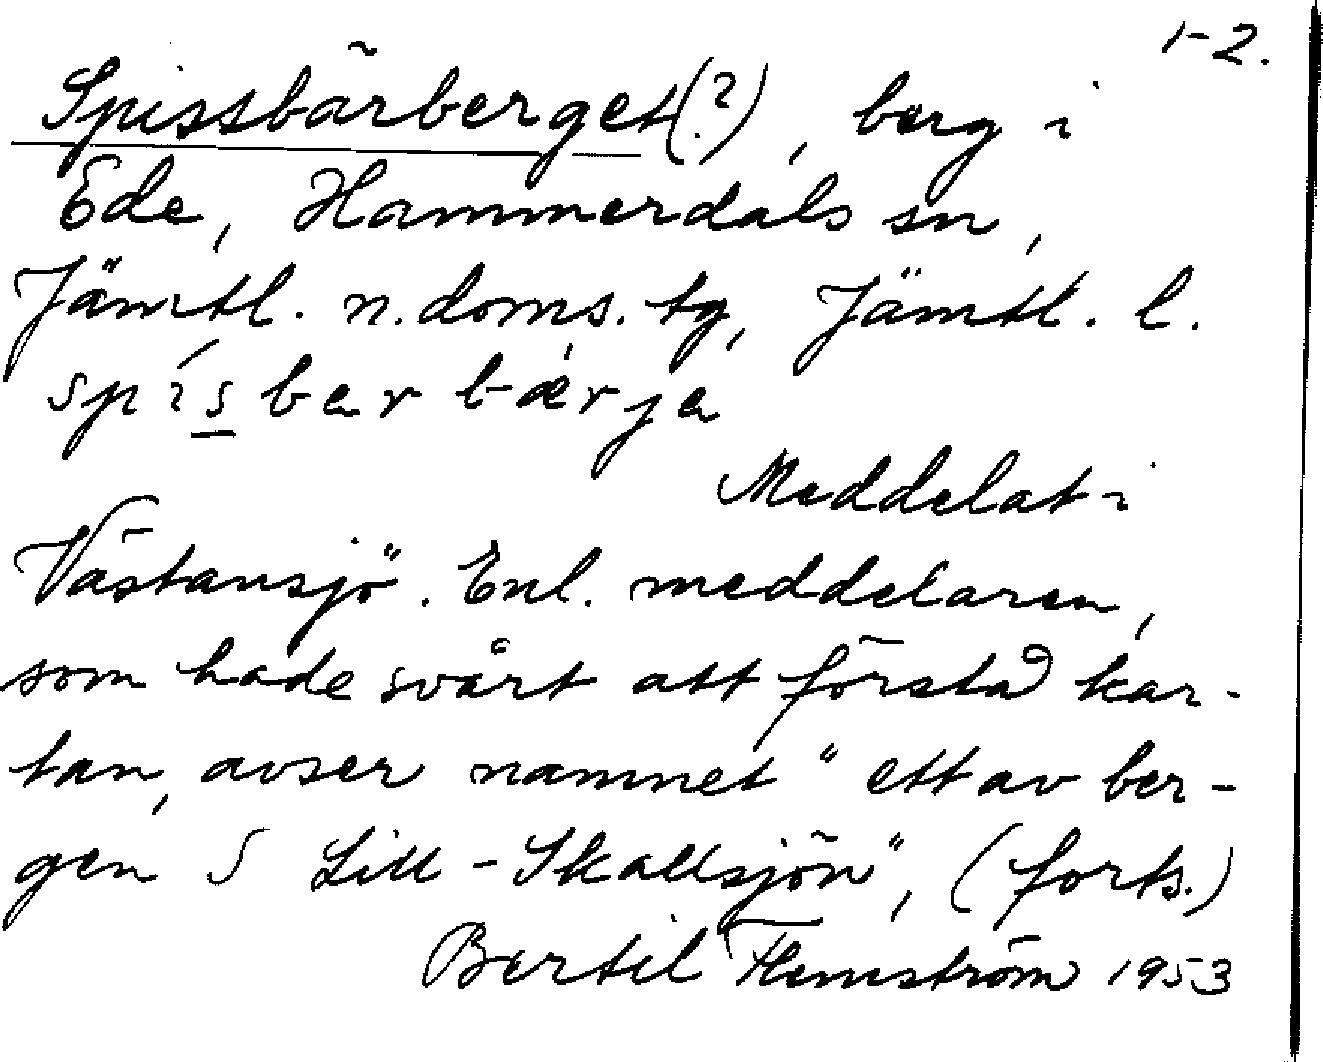 1-2.
Spissbärberget(?), berg i
Ede, Hammerdals sn,
Jämtl. n. doms. tg, Jämtl. l.
spísbarbær̍ja
Meddelat i
Västansjö. Enl. meddelaren,
som hade svårt att förstå kar-
tan, avser namnet "ett av ber-
gen S Lill-Skallsjön", (forts.)
Bertil Flemström 1953